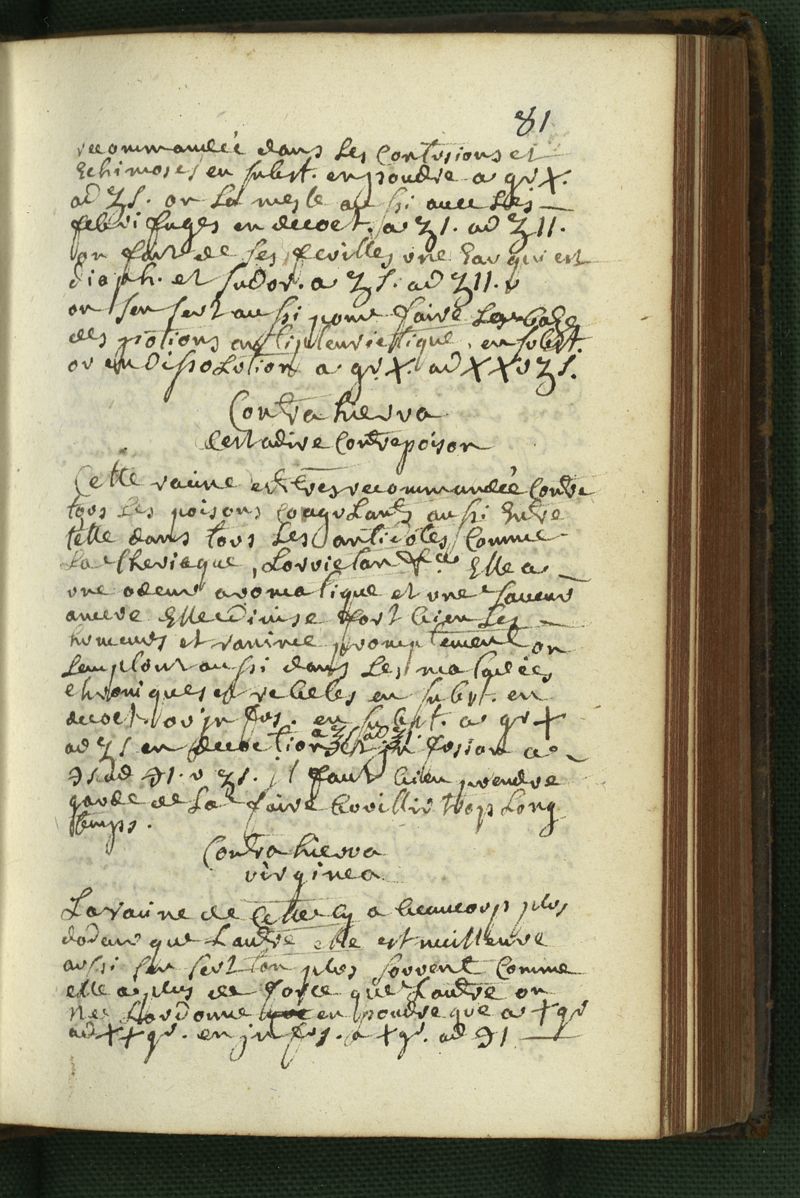 81
recommandeé dans les Contusions et
Echimoses en subst. en poudre a gr. X.
ad ʒ s. on La mesle aussi avec Les
febrifuges en decoct. a ʒ I. ad ʒ II.
on fait de ses fevilles vne Eau qui est
diaph. et sudor. a ʒ s. ad ʒ II.
on sen sert aussi pour faire Les
des potions antipleuretique, en subst.
ov en Dissolvtion a gr. X. ad XX v ʒ s.
Contrahierva
cest adire Contrepoison
Cette racine est tres recommandeé Contre
tovs Les poisons Coagvlants aussi Entre
telle dans tovs Les antidotes Comme
La theriaque, Lorvietan &c.a Elle a
vne odeur aromatique et vne saveur
amere Elle Divise fort bien Les
humeurs et ranime promptement on
Lemploie aussi dans Les maladies
chroniques et rebelles en subst. en
decoct. ov jnfvs. en subst. a gr X
ad ʒ s en decoction a ʒ s ad ʒ I. et jnfvsion a
℈ s ad ℈ I. v ʒ s. jl faut bien prendre
garde de La faire bovillir trop Long
temps.
Contrahierva
virginea
La racine de Celle Cy a beaucovp plvs
dodeur que Lautre elle est meilleure
avssi sen sert ton plvs sovvent Comme
elle a plus de force que Lautre on
Ne Lordonne en poudre que a X gr
ad XX gr. en jnfvs. a X gr. ad ℈ I